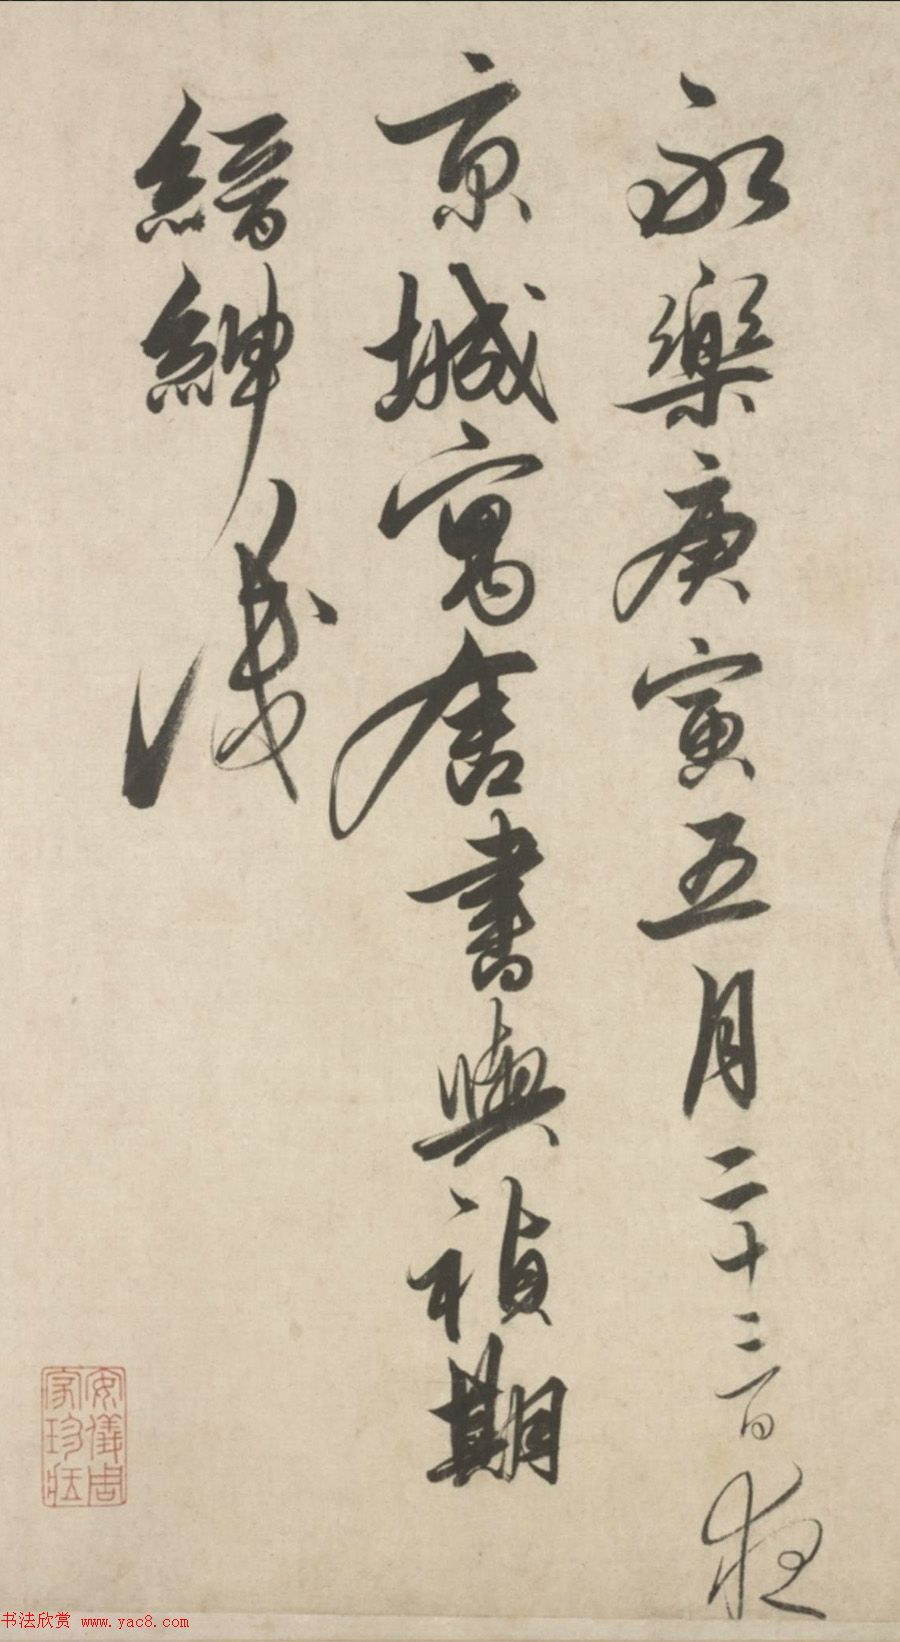 永樂庚寅五月二十三日夜
京城寓舍書與禎期
縉紳識
安儀周家珍藏
书法欣赏 www.yac8.com